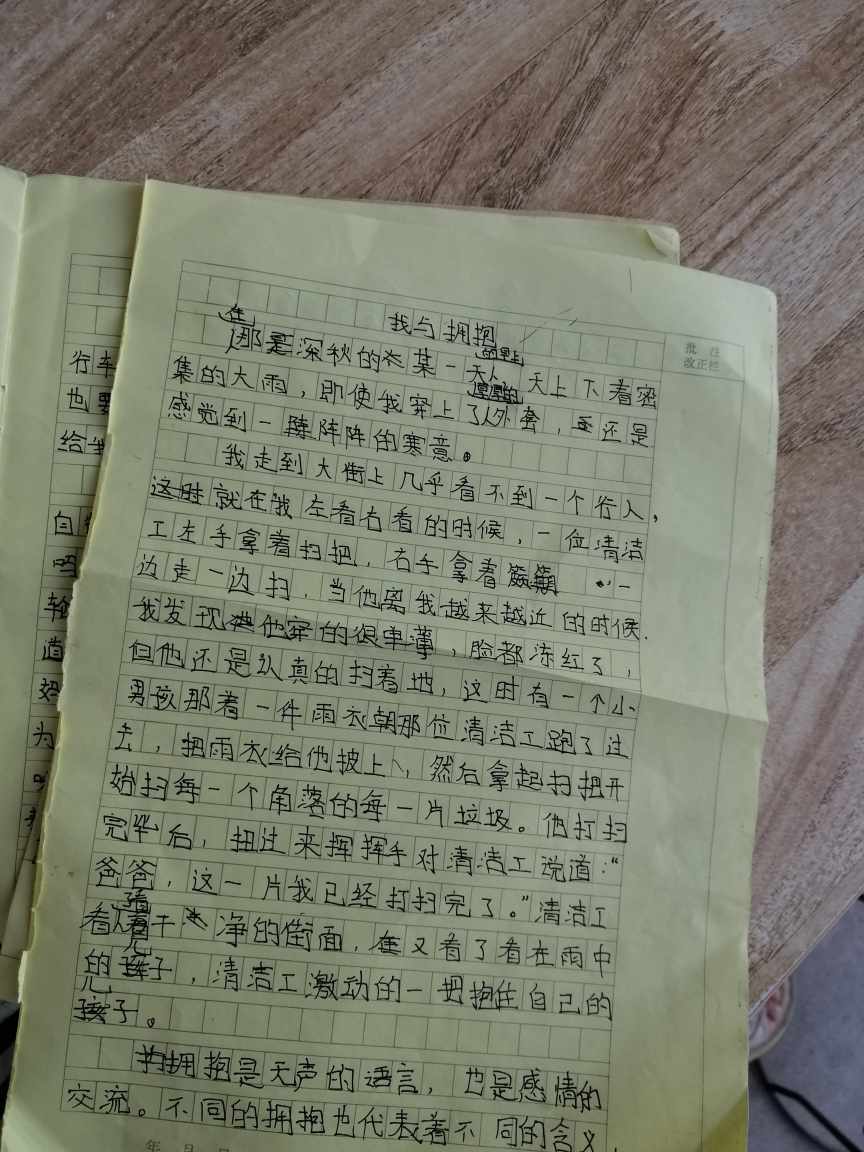 我与拥抱
批 注
改正栏
在那是深秋的某一天的早上,天上下着密
集的大雨,即使我穿上了厚厚的外套,还是
感觉到一阵阵的寒意。
我走到大街上几乎看不到一个行人,
就在我左看右看的时候,一位清洁
工左手拿着扫把,右手拿着 一
边走一边扫,当他离我越来越近的时候.
我发现他穿的很单薄,脸都冻红了,
但他还是认真的扫着地,这时有一个小
男孩那着一件雨衣朝那位清洁工跑了过
去,把雨衣给他披上,然后拿起扫把开
始扫每一个角落的每一片垃圾。他打扫
完毕后,扭过来挥挥手对清洁工说道:“
爸爸,这一片我已经打扫完了。”清洁工
看着干净的街面,又看了看在雨中
的儿子,清洁工激动的一把抱住自己的
儿子。
拥抱是无声的语言,也是感情的
交流。不同的拥抱也代表着不同的含义,
年 月 日
行车
也要
给
自
吗
轮
道
妈
为